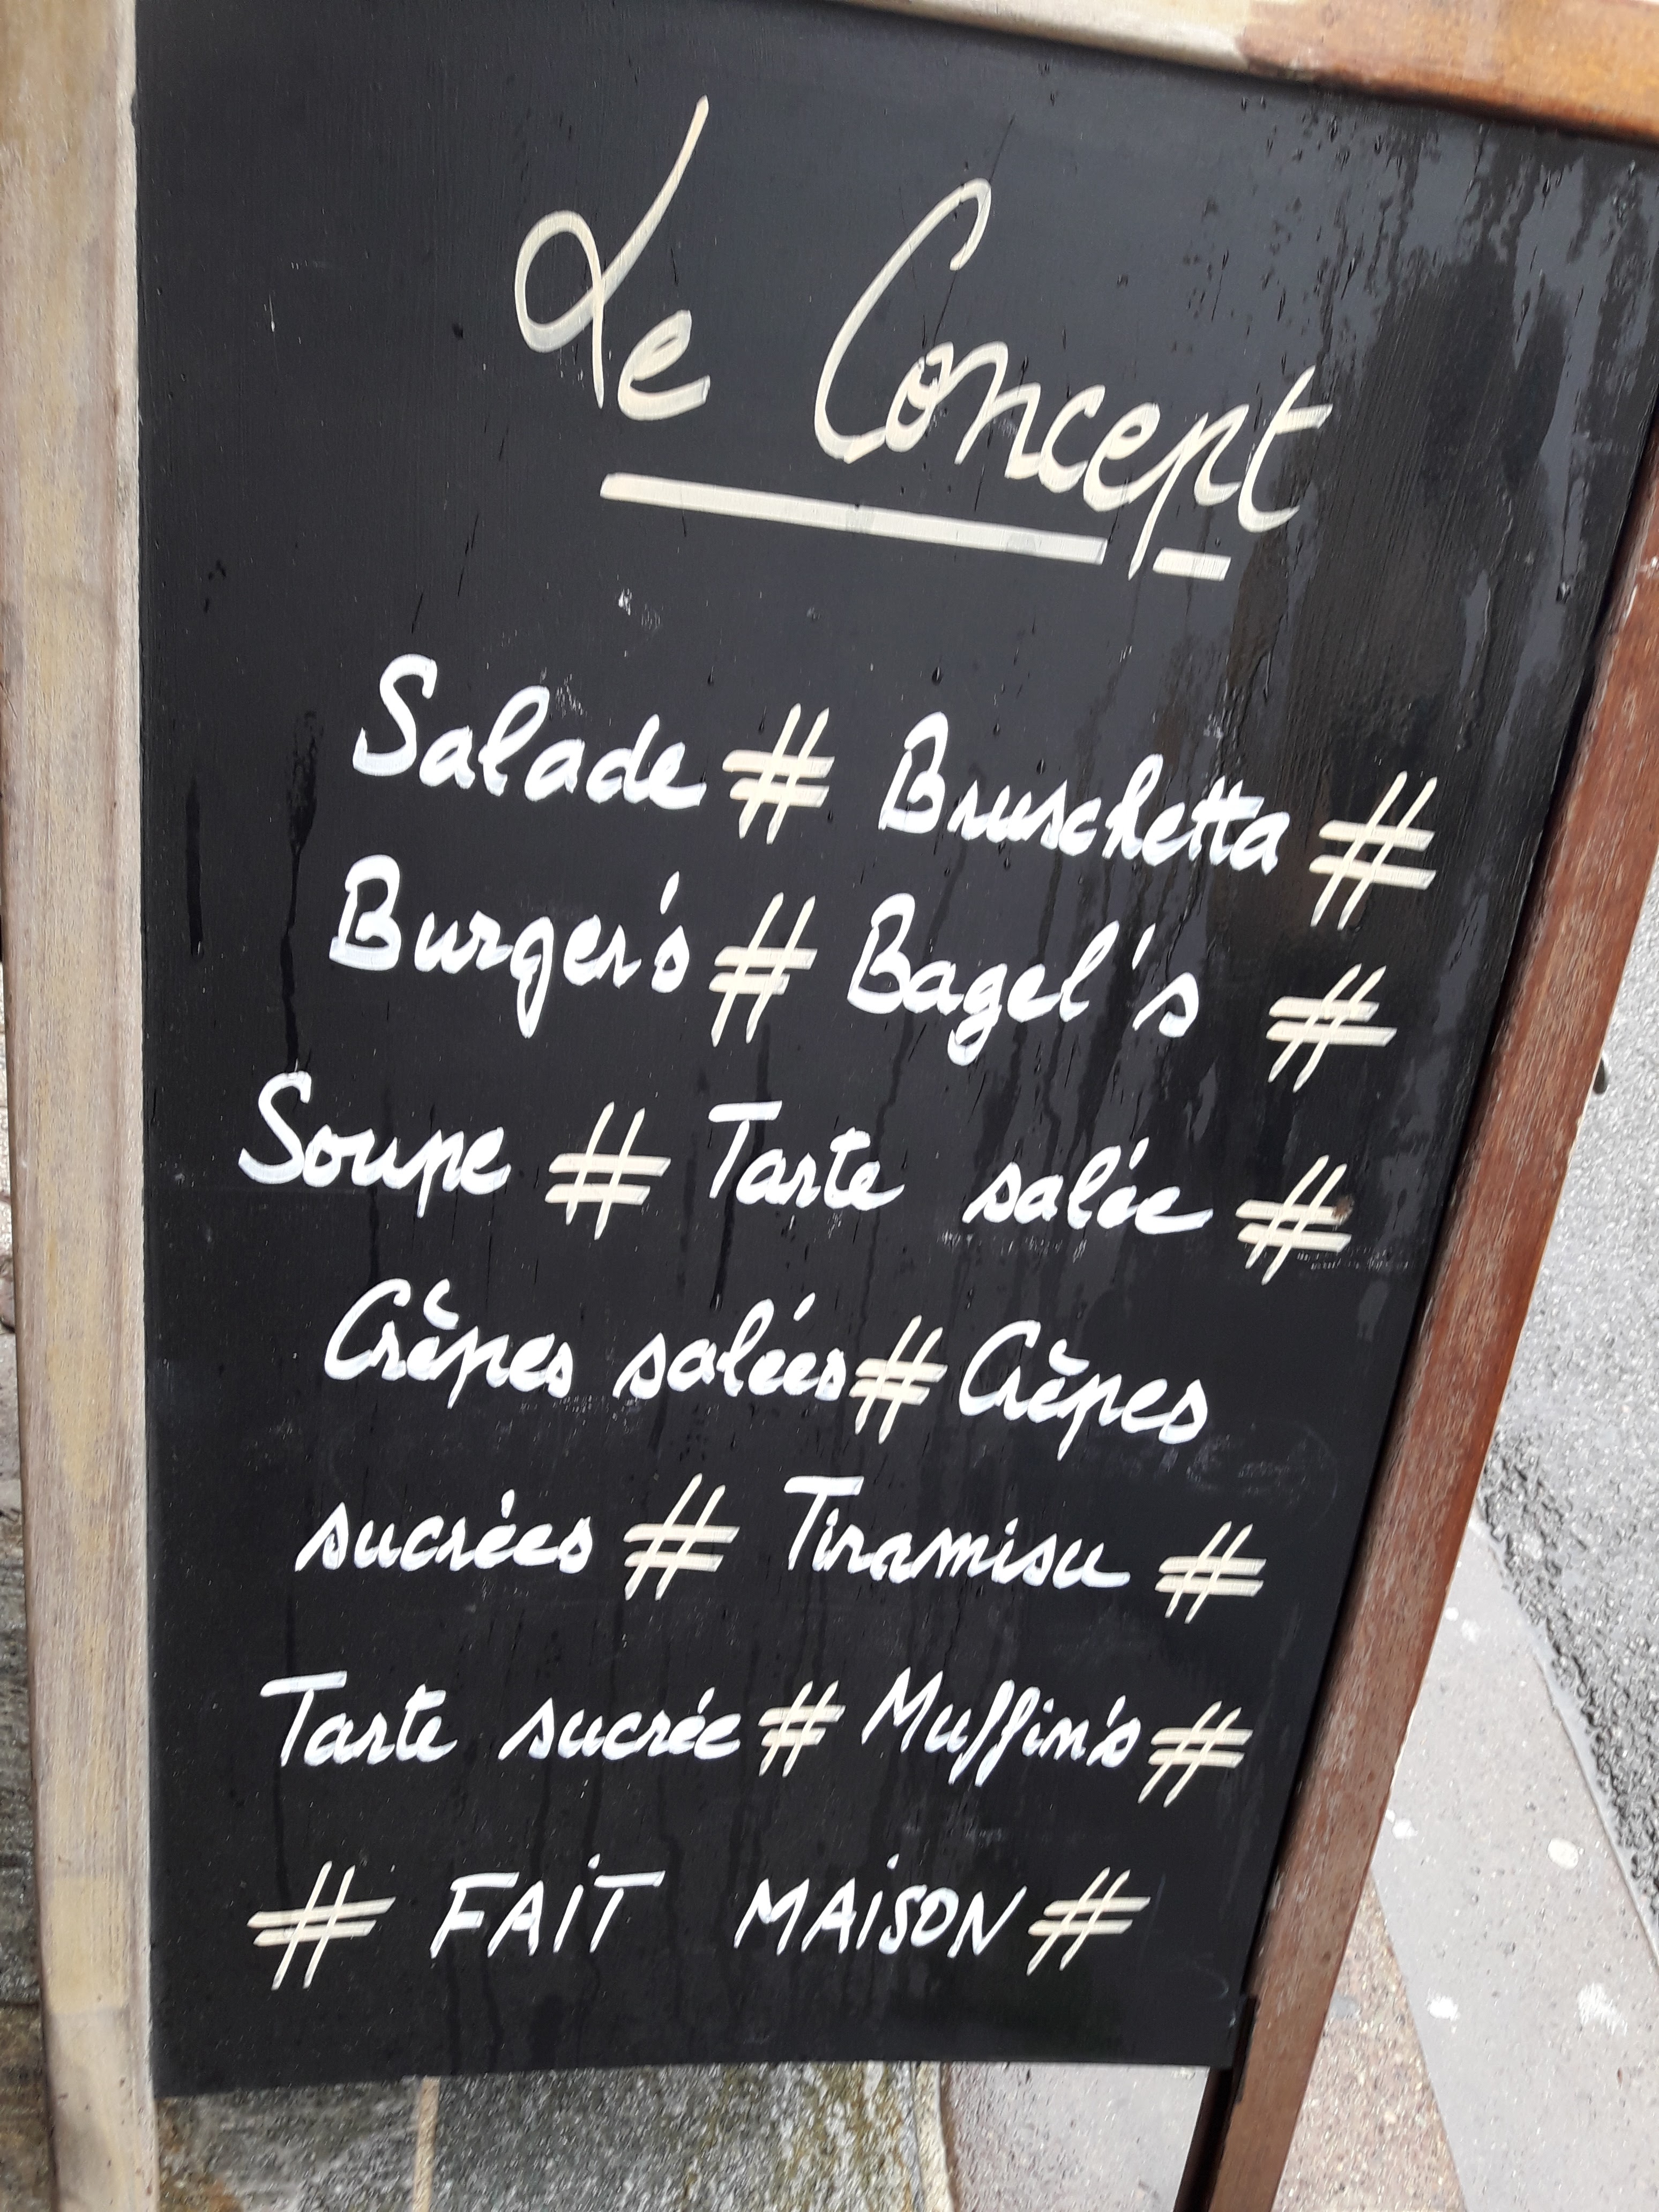 Le Concept
Salade # Bruschetta #
Burger's # Bagel's #
Soupe # Tarte salée #
Crêpes salées # Crêpes
sucrées # Tiramisu #
Tarte sucrée # Muffin's #
# FAIT MAISON #